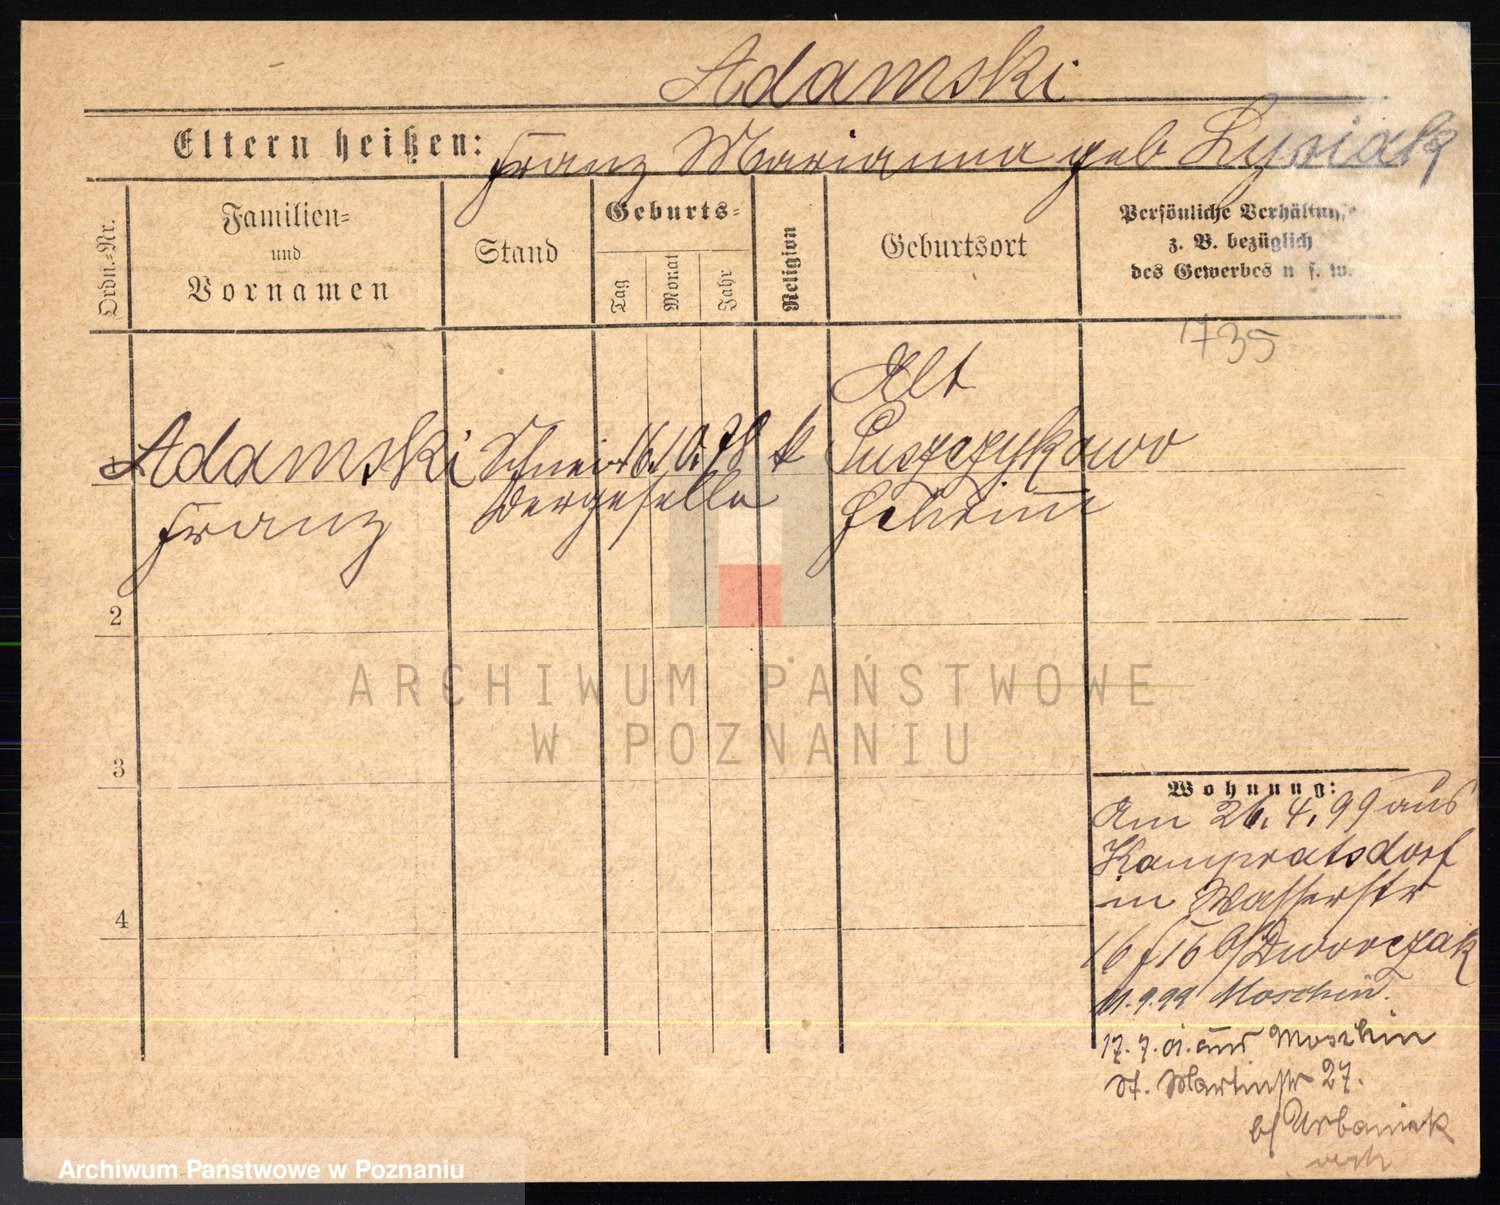 Adamski
Eltern heißen: Franz Marianna geb Lysiak
Ordn.-Nr.
Familien-
und
Vornamen
Stand
Geburts-
Tag
Monat
Jahr
Religion
Geburtsort
Persönliche Verhältnisse
z. B. bezüglich
des Gewerbes u. s. w.
735
1
Adamski
Franz
Schnei-
dergeselle
16. 10. 78
k
Alt
Puszczykowo
Schrimm
2
3
4
ARCHIWUM PAŃSTWOWE
W POZNANIU
Wohnung:
Am 26. 4. 99 aus
in Wasserstr
16 b/Dworczak
11.9.99 Moschin.
17. 7. 01. aus Moschin
St. Martinstr 27.
b/ Urbaniak
Archiwum Państwowe w Poznaniu